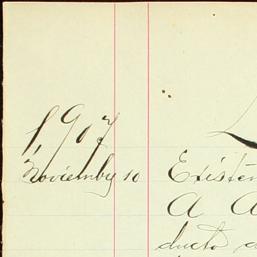 1907
Noviembre 10 Existen
A A
ducto a